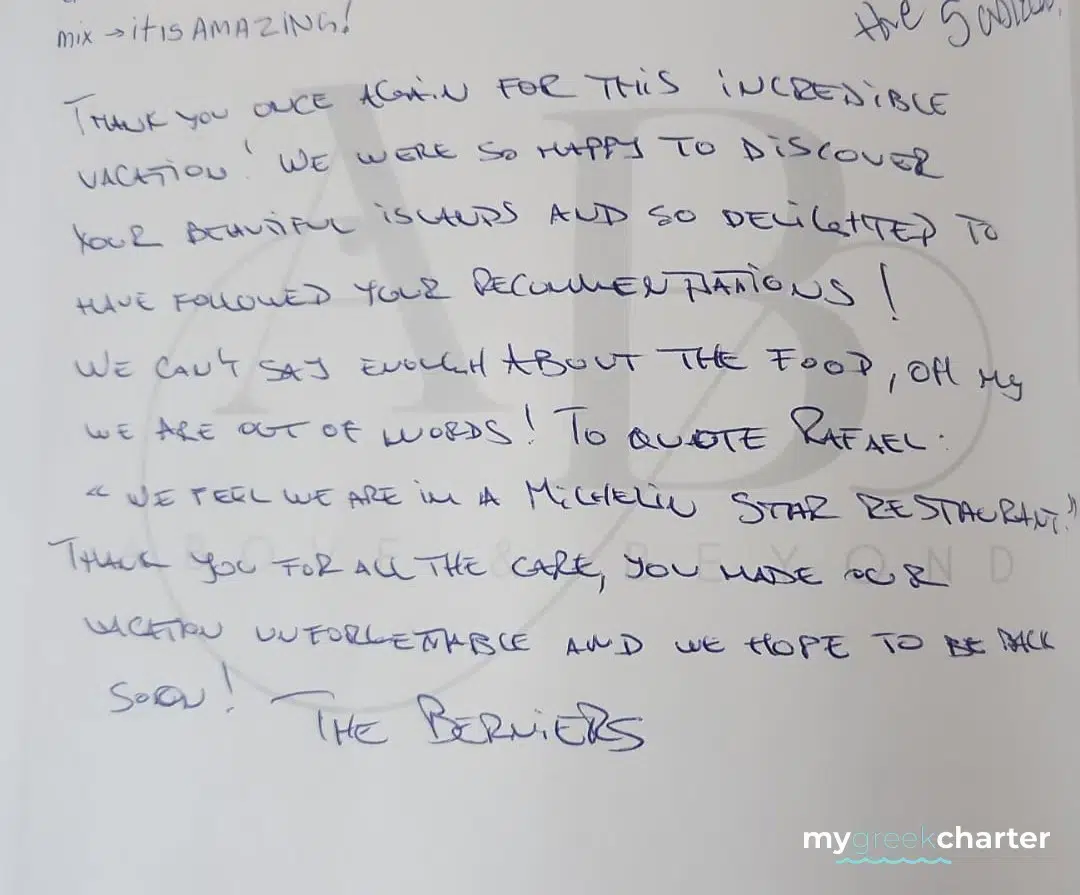 mix → it IS AMAZING!
the
THANK YOU ONCE AGAIN FOR THIS INCREDIBLE
VACATION! WE WERE SO HAPPY TO DISCOVER
YOUR BEAUTIFUL ISLANDS AND SO DELIGHTED TO
HAVE FOLLOWED YOUR RECOMMENDATIONS!
WE CAN'T SAY ENOUGH ABOUT THE FOOD, OH MY
WE ARE OUT OF WORDS! TO QUOTE RAFAEL:
"WE FEEL WE ARE IN A MICHELIN STAR RESTAURANT."
THANK YOU FOR ALL THE CARE, YOU MADE OUR
VACATION UNFORGETTABLE AND WE HOPE TO BE BACK
SOON! THE BERNIERS
AB
ABOVE & BEYOND
mygreekcharter